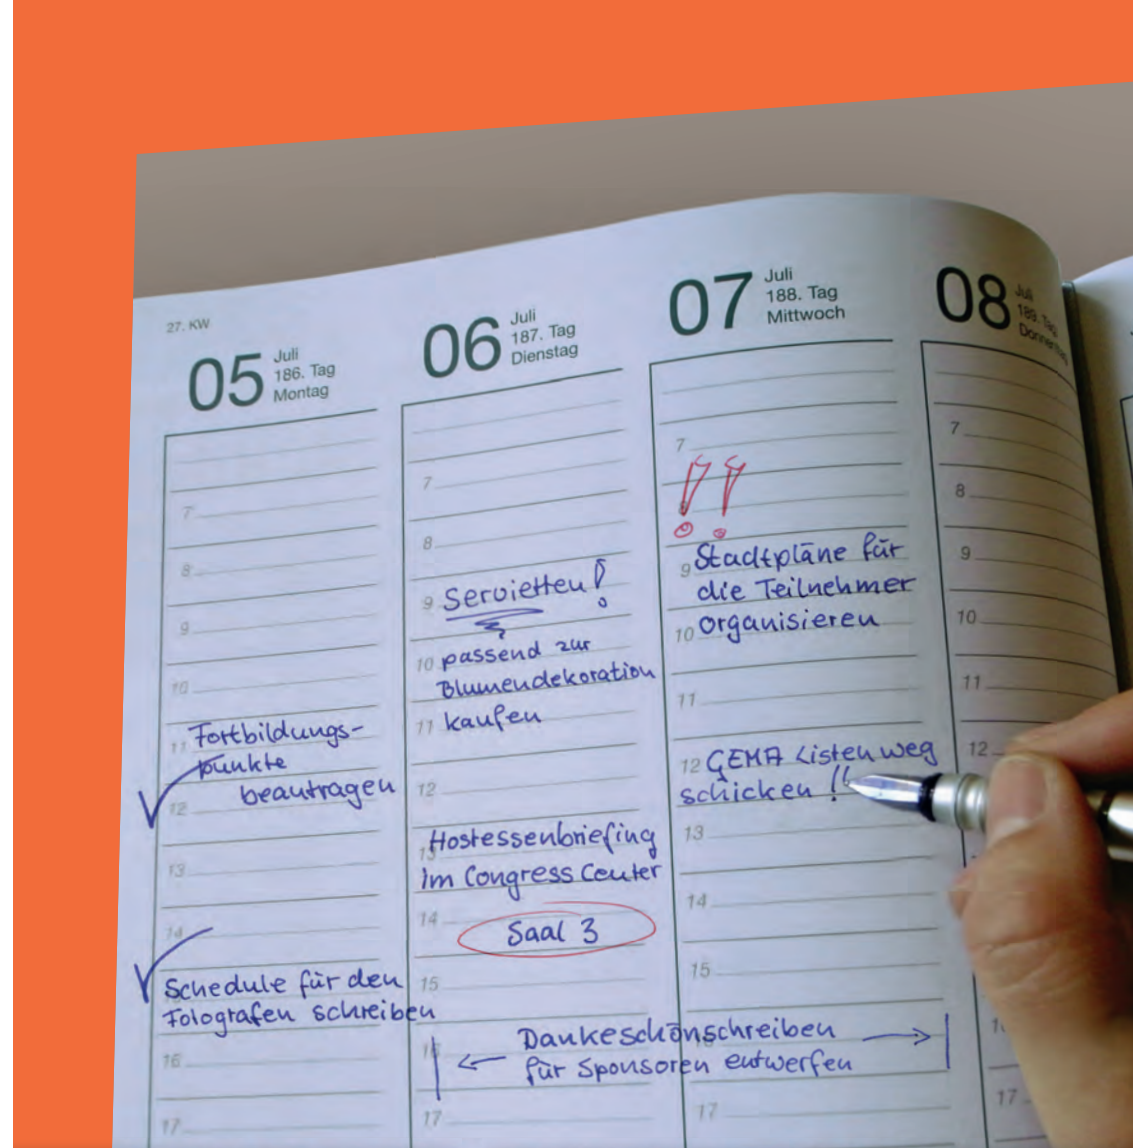 27. KW
05
Juli
186. Tag
Montag
7
8
9
10
11 Fortbildungs-
punkte
beantragen
12
13
14
Schedule für den
Fotografen schreiben
16
17
06
Juli
187. Tag
Dienstag
7
8
9 Servietten!
10 passend zur
Blumendekoration
11 kaufen
12
Hostessenbriefing
13
im Congress Center
14
Saal 3
15
16
Dankeschönschreiben
für Sponsoren entwerfen
17
07
Juli
188. Tag
Mittwoch
7
!!
8
Stadtpläne für
9
die Teilnehmer
10 organisieren
11
12 GEMA Listen weg
schicken !!
13
14
15
17
08
Juli
189. Tag
Donnerstag
7
8
9
10
11
12
17